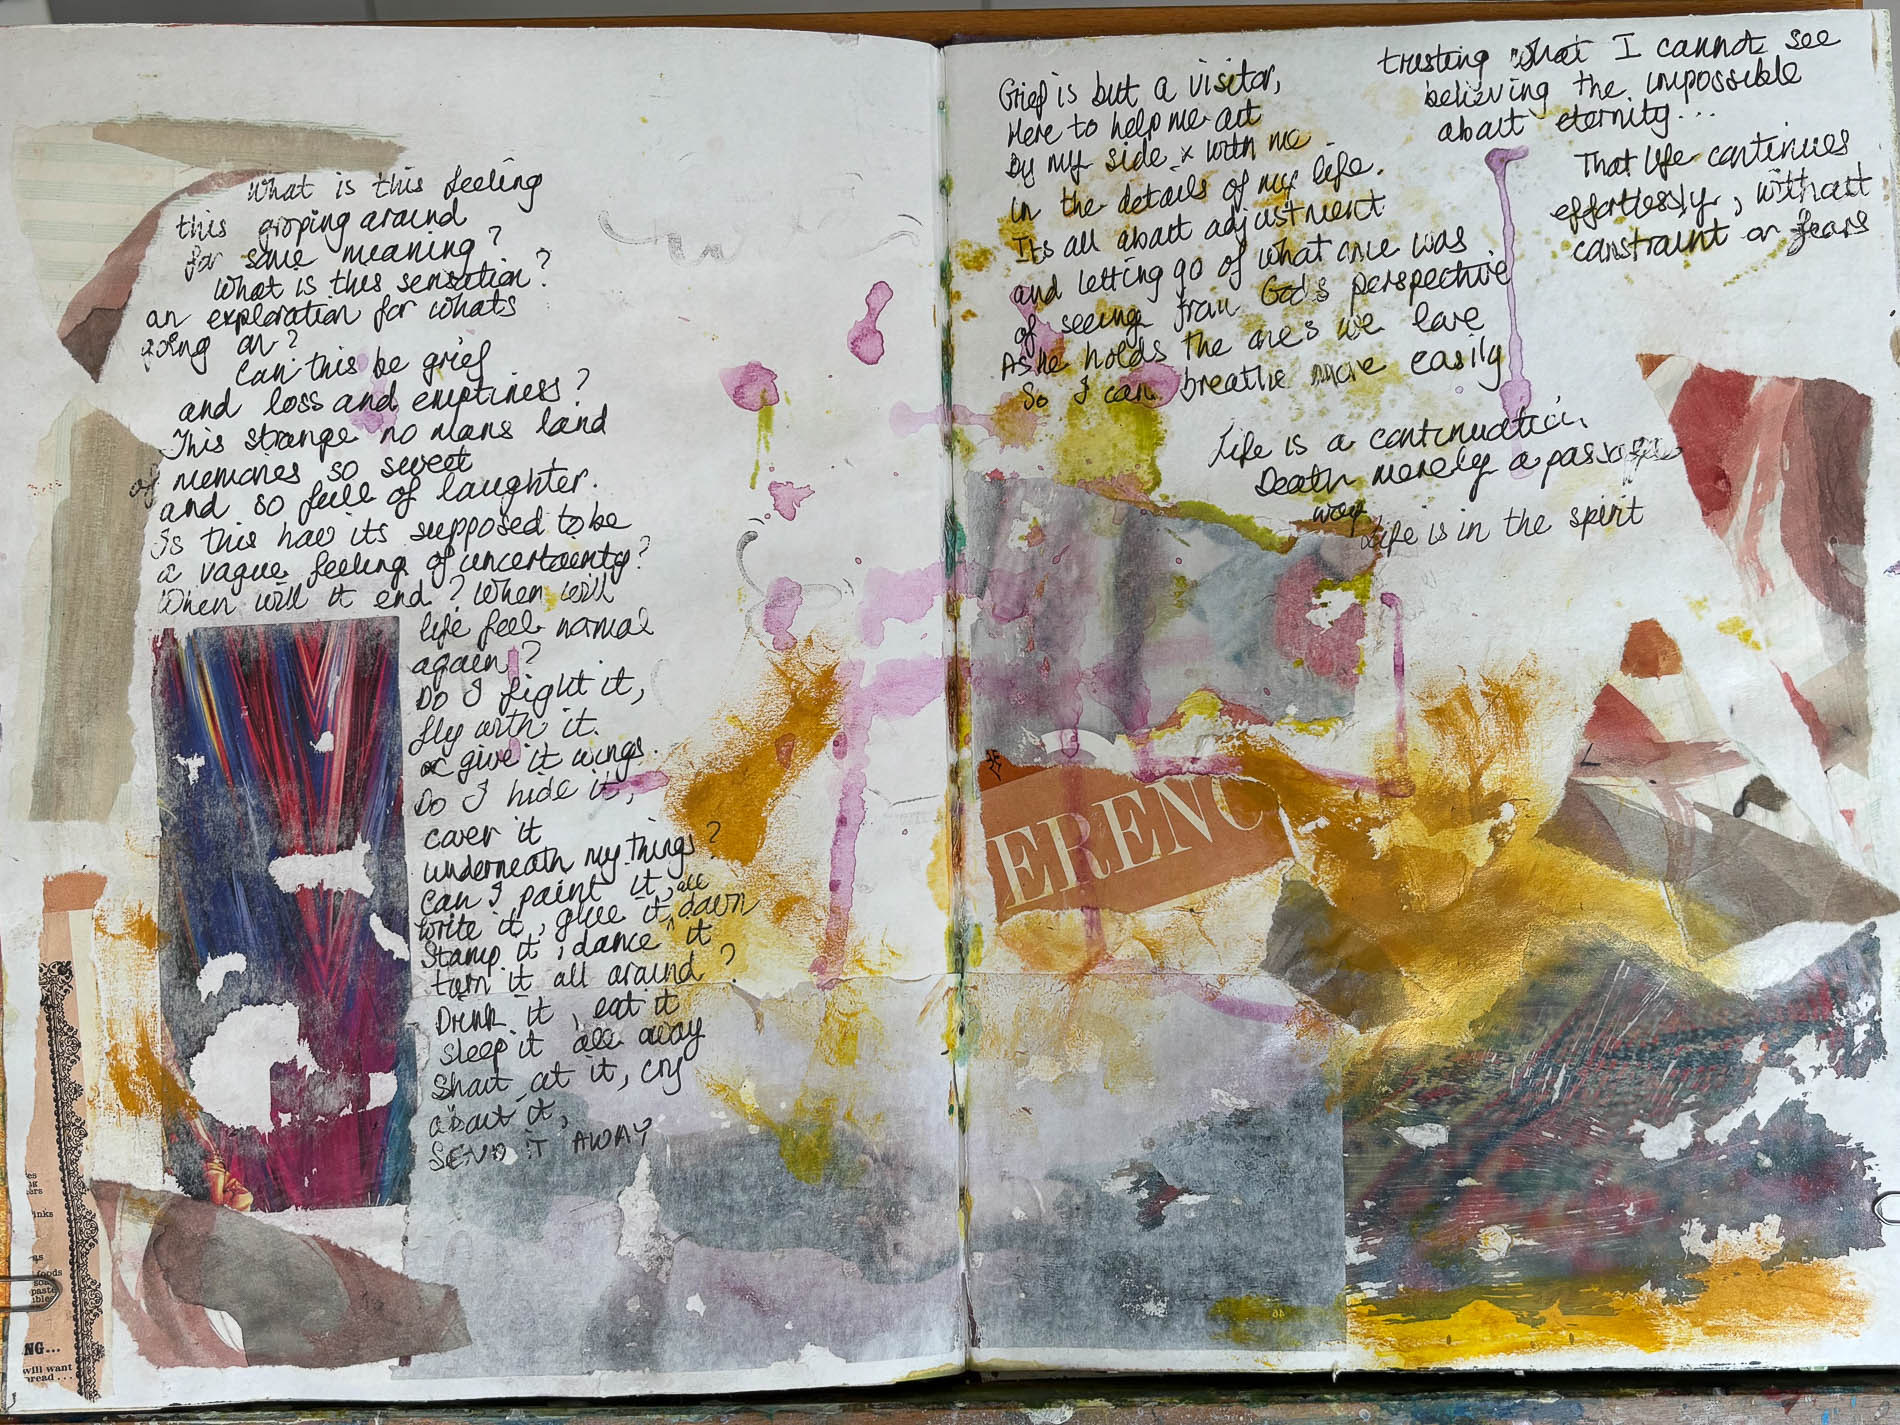 What is this feeling
this groping around
for some meaning?
What is this sensation?
an exploration for whats
going on?
Can this be grief
and loss and emptiness?
This strange no mans land
of memories so sweet
and so full of laughter.
Is this how its supposed to be
a vague feeling of uncertainty?
When will it end? When will
life feel normal
again?
Do I fight it,
fly with it.
or give it wings.
Do I hide it,
cover it
underneath my things?
Can I paint it, all
write it, glue it, down
Stamp it, dance ^ it
turn it all around?
Drink it, eat it
sleep it all away
Shout at it, cry
about it,
SEND IT AWAY
es
ng
ers
inks
as
foods
paste
ibles
NG...
will want
read...
Grief is but a visitor,
Here to help me out
By my side x with me
in the details of my life.
Its all about adjustment
and letting go of what once was
of seeing from God's perspective
As he holds the ones we love
So I can breathe more easily
Life is a continuation,
Death merely a passage
way
Life is in the spirit
trusting what I cannot see
believing the impossible
about eternity...
That life continues
effortlessly, without
constraint or fears
ERENC
46